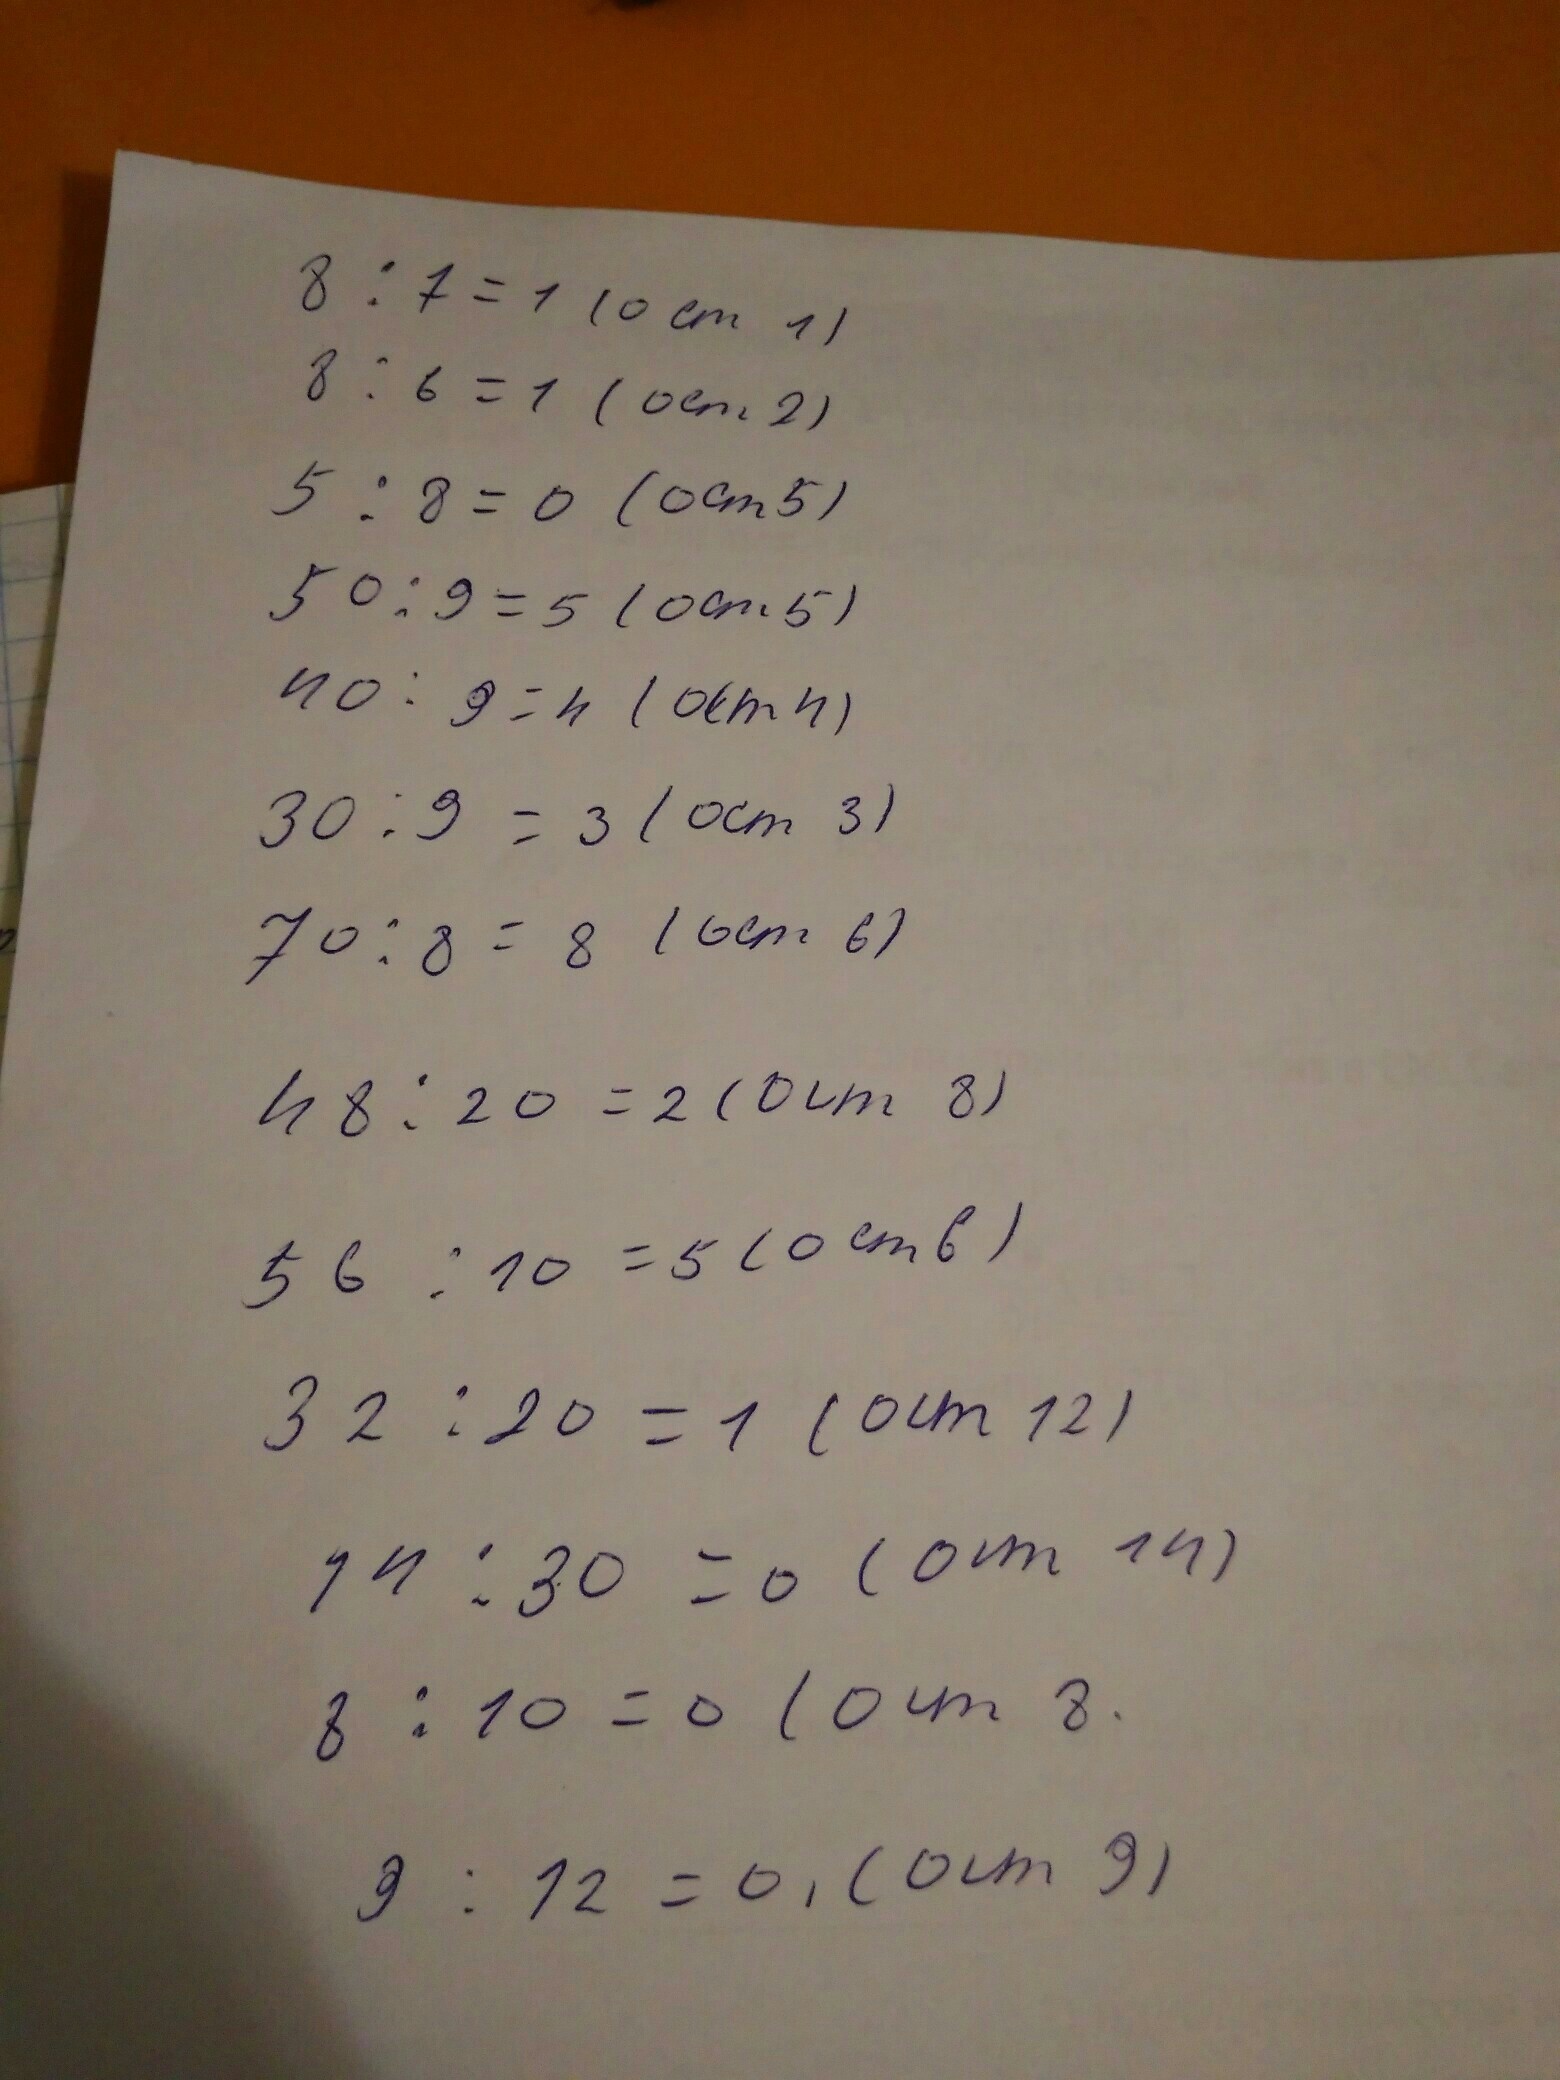 8 : 7 = 1 (ост 1)
8 : 6 = 1 (ост. 2)
5 : 8 = 0 (ост 5)
50 : 9 = 5 (ост. 5)
40 : 9 = 4 (ост 4)
30 : 9 = 3 (ост 3)
70 : 8 = 8 (ост 6)
48 : 20 = 2 (ост 8)
56 : 10 = 5 (ост 6)
32 : 20 = 1 (ост 12)
14 : 30 = 0 (ост 14)
8 : 10 = 0 (ост 8.
9 : 12 = 0, (ост 9)